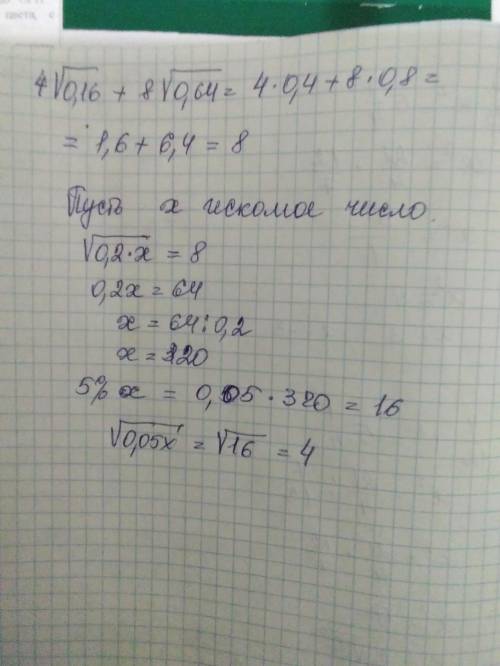 пасти, с
4√0,16 + 8√0,64 = 4·0,4 + 8·0,8 =
= 1,6 + 6,4 = 8
Пусть x искомое число.
√0,2·x = 8
0,2x = 64
x = 64:0,2
x = 320
5% x = 0,05·320 = 16
√0,05x = √16 = 4